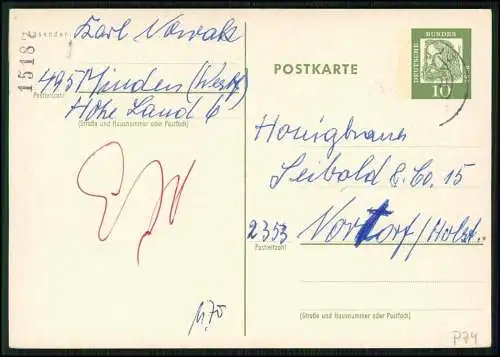 15182
Absender: Karl Nowak
495 Minden (Westf)
Postleitzahl
Hohe Land 6
(Straße und Hausnummer oder Postfach)
POSTKARTE
DEUTSCHE BUNDES
10
Honigbraun
Seibold & Co. 15
2353 Nortorf/Holst.
Postleitzahl
(Straße und Hausnummer oder Postfach)
P74